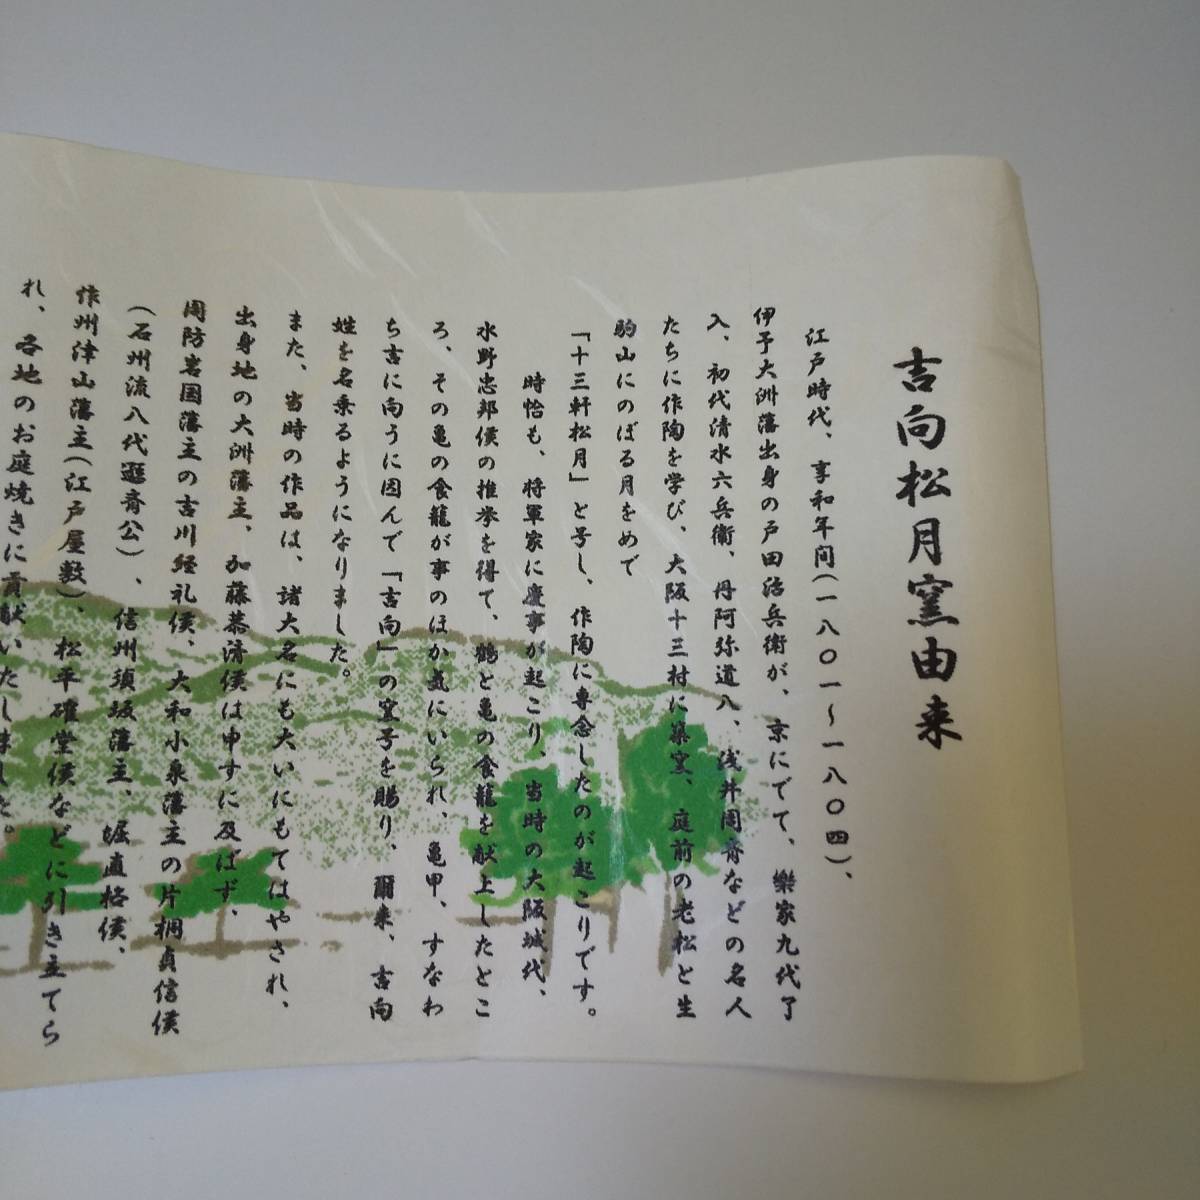 吉向松月窯由来
江戸時代、享和年間(一八〇一〜一八〇四)、
伊予大洲藩出身の戸田治兵衛が、京にでて、樂家九代了
入、初代清水六兵衛、丹阿弥道八、浅井周斉などの名人
たちに作陶を学び、大阪十三村に築窯、庭前の老松と生
駒山にのぼる月をめで
「十三軒松月」と号し、作陶に専念したのが起こりです。
時恰も、将軍家に慶事が起こり、当時の大阪城代、
水野忠邦侯の推挙を得て、鶴と亀の食籠を献上したとこ
ろ、その亀の食籠が事のほか気にいられ、亀甲、すなわ
ち吉に向うに因んで「吉向」の窯号を賜り、爾来、吉向
姓を名乗るようになりました。
また、当時の作品は、諸大名にも大いにもてはやされ、
出身地の大洲藩主、加藤泰済侯は申すに及ばず、
周防岩国藩主の吉川経礼侯、大和小泉藩主の片桐貞信侯
(石州流八代遜斉公)、信州須坂藩主、堀直格侯、
作州津山藩主(江戸屋敷)、松平確堂侯などに引き立てら
れ、各地のお庭焼きに貢献いたしました。